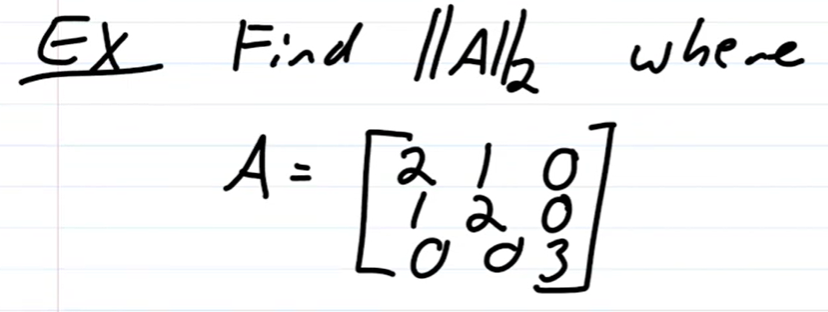 Ex Find ||A||₂ where
A = [2 1 0
1 2 0
0 0 3]